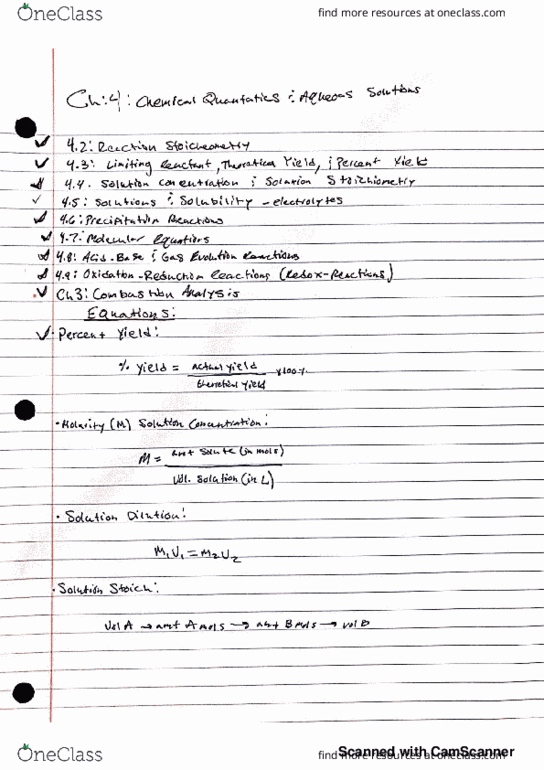 OneClass
find more resources at oneclass.com
Ch:4: Chemical Quantatics & Aqueous Solutions
4.2: Reaction Stoicheometry
4.3: Limiting Reactant, Theoretical Yield, & Percent Yield
4.4. Solution Concentration & Solution Stoichiometry
4.5: Solutions & Solubility - electrolytes
4.6: Precipitation Reactions
4.7: Molecular Equations
4.8: Acid-Base & Gas Evolution Reactions
4.9: Oxidation-Reduction Reactions (Redox-Reactions)
Ch3: Combustion Analysis
Equations:
Percent Yield:
% Yield = actual yield / theoretical yield x100%
• Molarity (M) Solution Concentration:
M = amt solute (in mols) / Vol. Solution (in L)
• Solution Dilution:
M₁V₁ = M₂V₂
• Solution Stoich:
Vol A → amt A mols → amt B mols → vol B
OneClass
find more resources at oneclass.com
Scanned with CamScanner